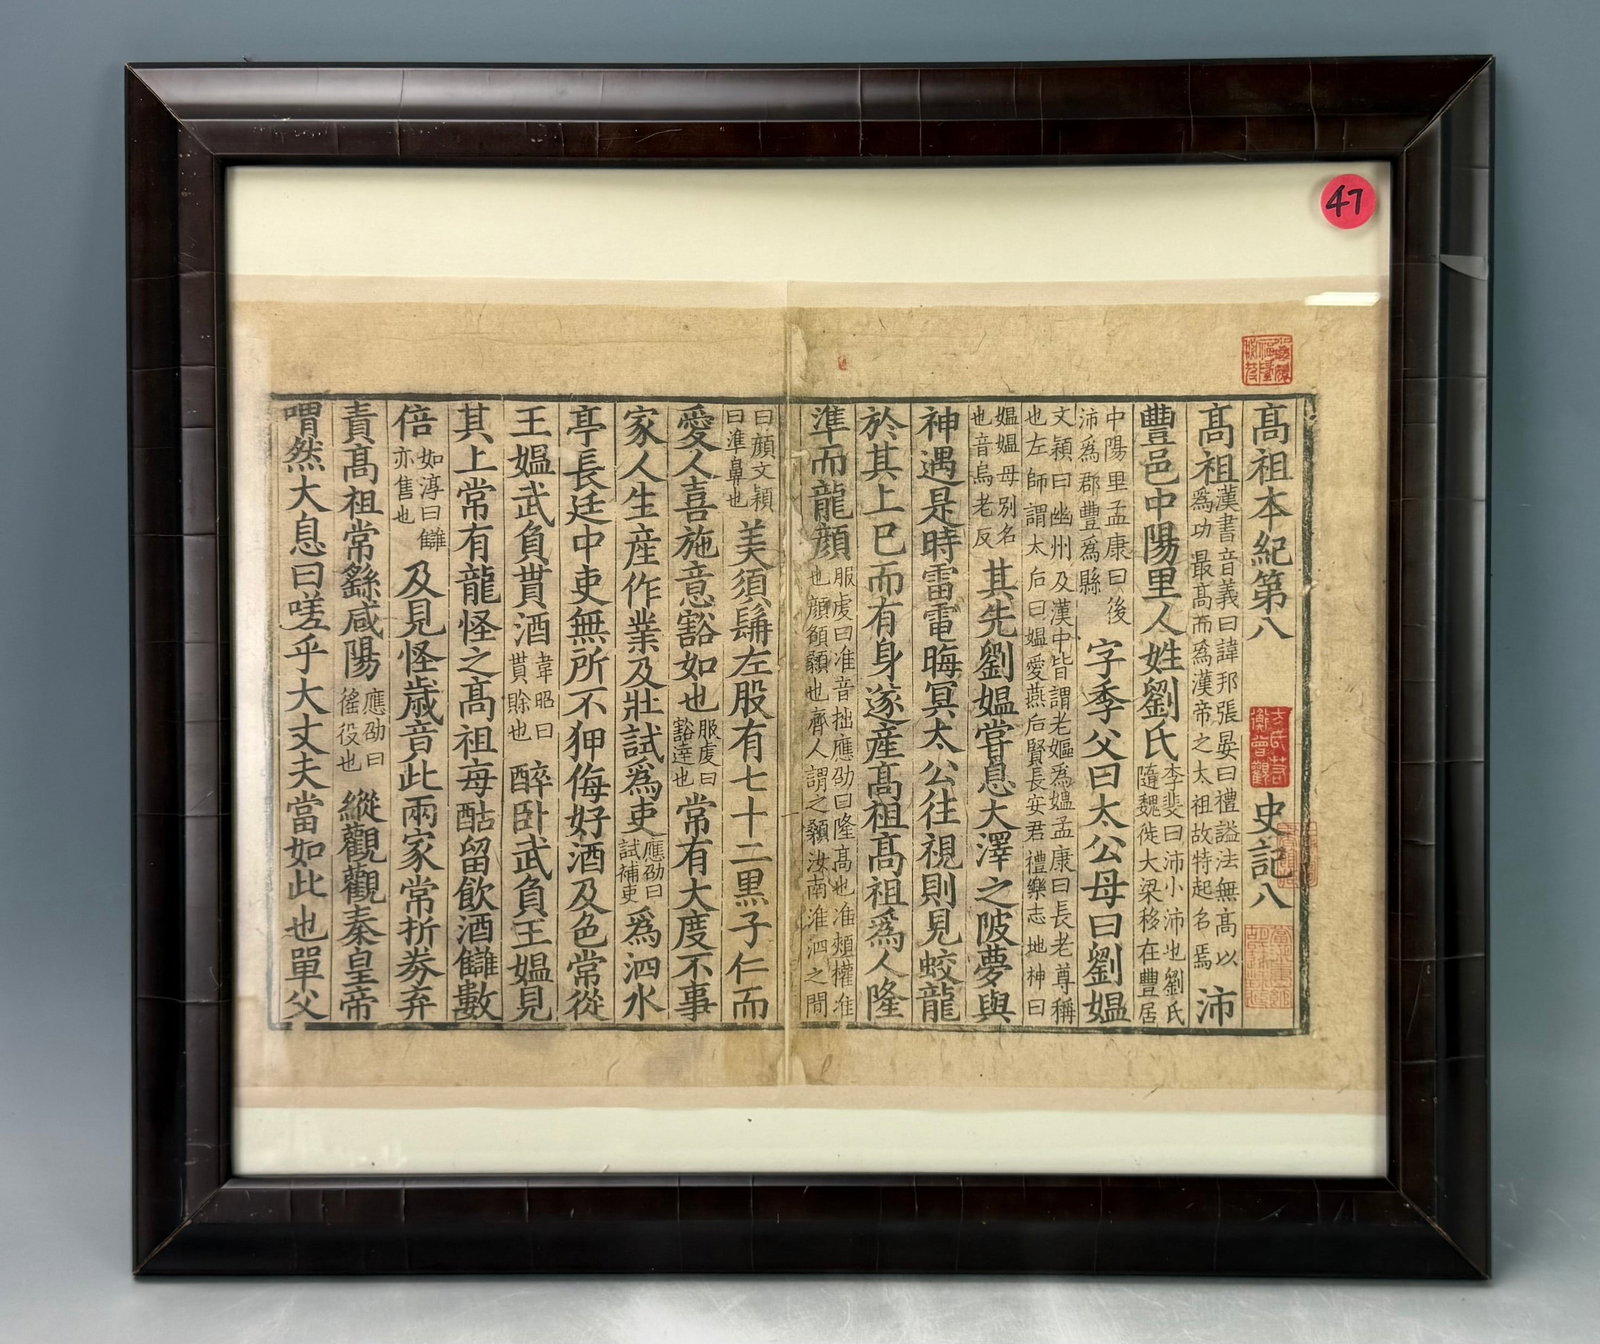 47
髙祖本紀第八 史記八
髙祖漢書音義曰諱邦張晏曰禮謚法無髙以爲功最髙而爲漢帝之太祖故特起名焉沛
豐邑中陽里人姓劉氏李斐曰沛小沛也劉氏隨魏徙大梁移在豐居
中陽里孟康曰後沛爲郡豐爲縣字季父曰太公母曰劉媼
文穎曰幽州及漢中皆謂老嫗為媪孟康曰長老尊稱也左師謂太后曰媪愛燕后賢長安君禮樂志地神曰
媪媪母别名也音烏老反其先劉媪甞息大澤之陂夢與
神遇是時雷電晦冥太公往視則見蛟龍
於其上巳而有身遂産髙祖髙祖爲人隆
準而龍顔服虔曰准音拙應劭曰隆髙也准頰權准也顔頟顙也齊人謂之顙汝南淮泗之間
曰顔文穎曰準鼻也美須髯左股有七十二黒子仁而
愛人喜施意豁如也服虔曰豁達也常有大度不事
家人生産作業及壯試爲吏應劭曰試補吏爲泗水
亭長廷中吏無所不狎侮好酒及色常從
王媪武負貰酒韋昭曰貰賖也醉卧武負王媪見
其上常有龍怪之髙祖每酤留飲酒讎數
倍如淳曰讎亦售也及見怪歳竟此兩家常折劵弃
責髙祖常繇咸陽應劭曰徭役也縱觀觀秦皇帝
喟然大息曰嗟乎大丈夫當如此也單父